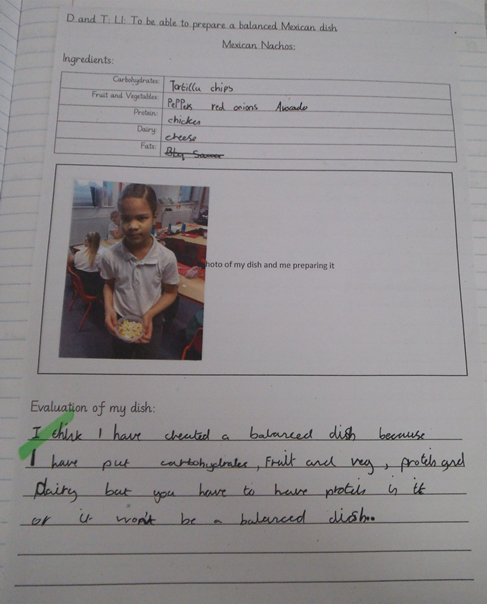 D and T: LI: To be able to prepare a balanced Mexican dish
Mexican Nachos:
Ingredients:
Carbohydrates: Tortilla chips
Fruit and Vegetables: Peppers red onions Avocado
Protein: chicken
Dairy: cheese
Fats: Bbq
hoto of my dish and me preparing it
Evaluation of my dish:
I think I have created a balanced dish because
I have put carbohydrates, Fruit and veg, protein and
Dairy but you have to have protein in it
or it won't be a balanced dish..